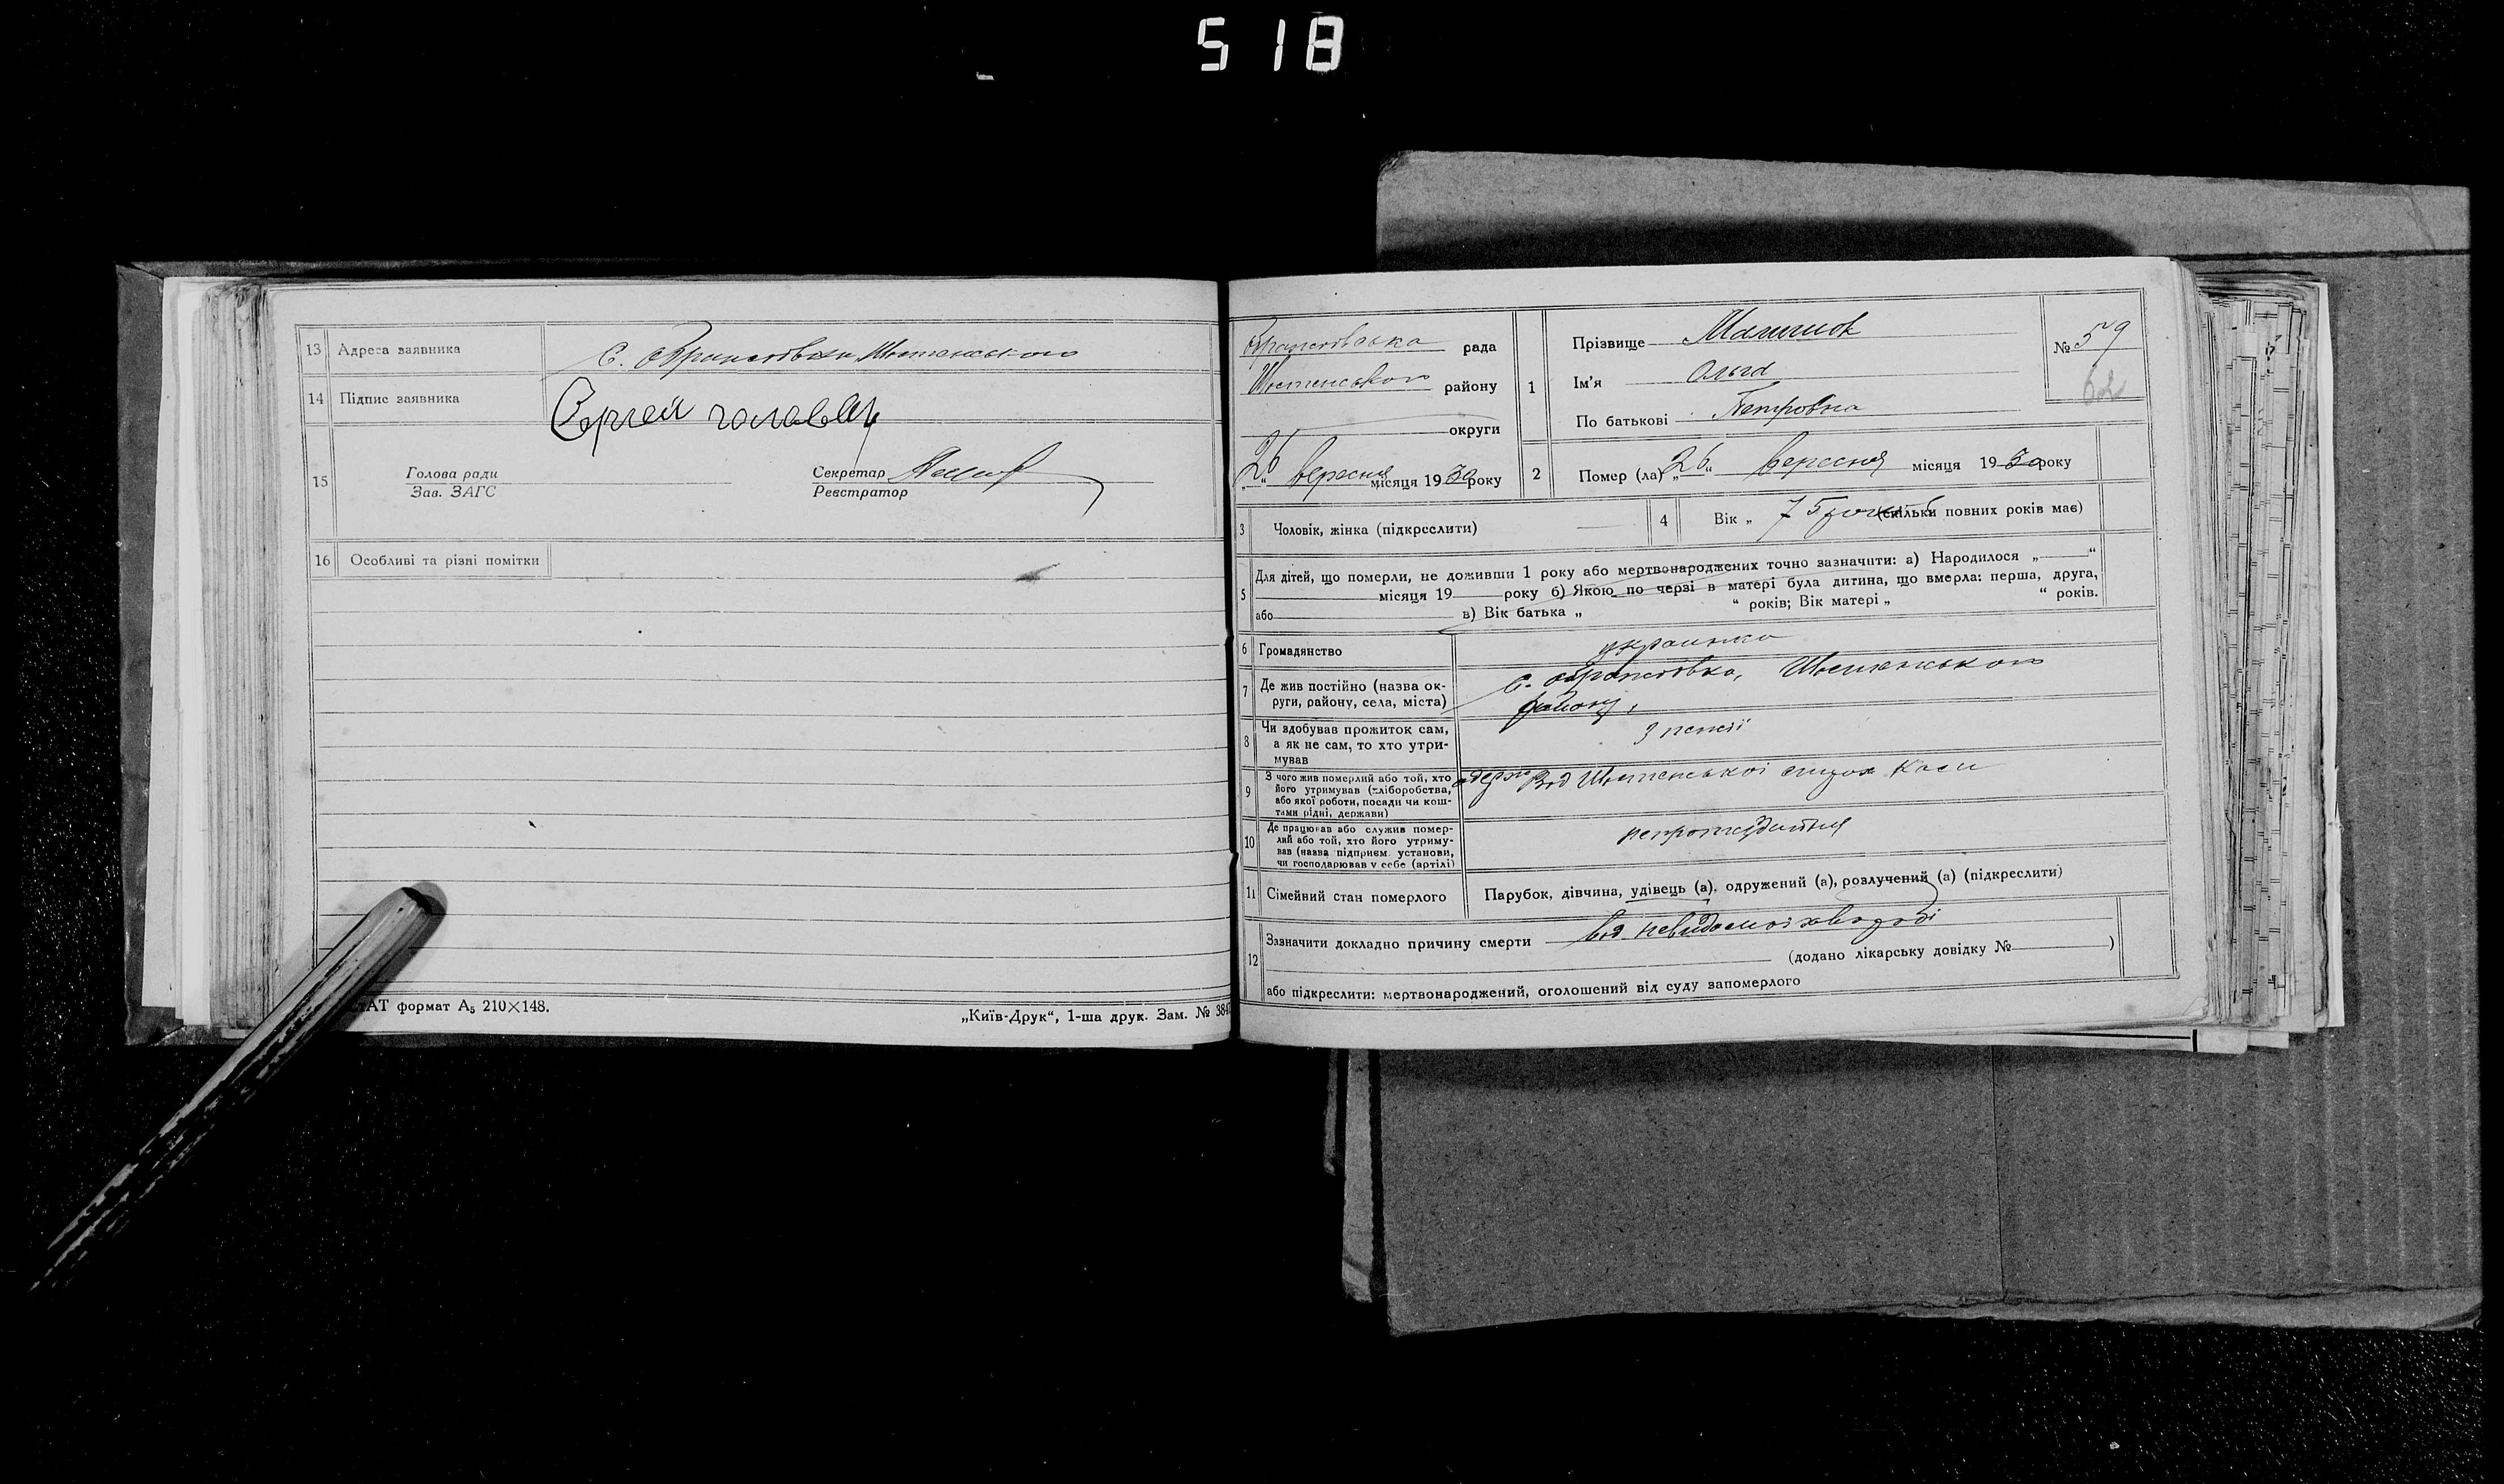 518
13 Адреса заявника с.
14 Підпис заявника Сергей
15 Голова ради Секретар
Зав. ЗАГС Реєстратор
16 Особливі та різні помітки
формат А₅ 210×148.
„Київ-Друк“, 1-ша друк. Зам. № 384
рада
району
округи
26 вересня місяця 1930 року
1 Прізвище
Ім'я Ольга
По батькові Петровна
№ 59
62
2 Помер (ла) „26“ вересня місяця 1930 року
3 Чоловік, жінка (підкреслити)
4 Вік „ 75 (скільки повних років має)
5 Для дітей, що померли, не доживши 1 року або мертвонароджених точно зазначити: а) Народилося „ “
місяця 19 року б) Якою по черзі в матері була дитина, що вмерла: перша, друга,
або в) Вік батька „ “ років; Вік матері „ “ років.
6 Громадянство украинка
7 Де жив постійно (назва ок-
руги, району, села, міста) с.
району,
8 Чи здобував прожиток сам,
а як не сам, то хто утри-
мував З пенсії
9 З чого жив померлий або той, хто
його утримував (хліборобства,
або якої роботи, посади чи кош-
тами рідні, держави) Від каси
10 Де працював або служив помер-
лий або той, хто його утриму-
вав (назва підприєм. установи,
чи господарював у себе (артілі)
11 Сімейний стан померлого Парубок, дівчина, удівець (а), одружений (а), розлучений (а) (підкреслити)
12 Зазначити докладно причину смерти від невидомоі
(додано лікарську довідку № )
або підкреслити: мертвонароджений, оголошений від суду запомерлого